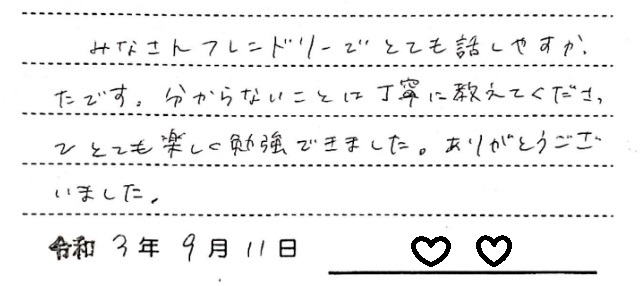 みなさんフレンドリーでとても話しやすかっ
たです。分からないことは丁寧に教えてくださっ
てとても楽しく勉強できました。ありがとうござ
いました。
令和 3 年 9 月 11 日